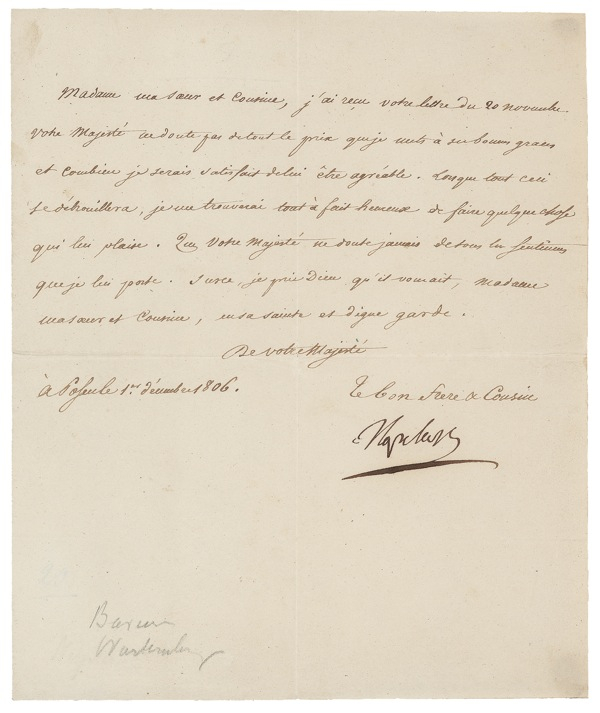 Madame ma sœur et Cousine, j'ai reçu votre lettre du 20 novembre
votre Majesté ne doute pas de tout le prix que je mets à ses bonnes graces
et combien je serais satisfait de lui être agréable. Lorsque tout ceci
se débrouillera, je me trouverai tout à fait heureux de faire quelque chose
qui lui plaise. Que Votre Majesté ne doute jamais de tous les sentimens
que je lui porte. Sur ce, je prie Dieu qu'il vous ait, Madame
ma sœur et Cousine, en sa sainte et digne garde.
De votre Majesté
à Posen le 1er décembre 1806.
Le bon frere & Cousin
Napoleon